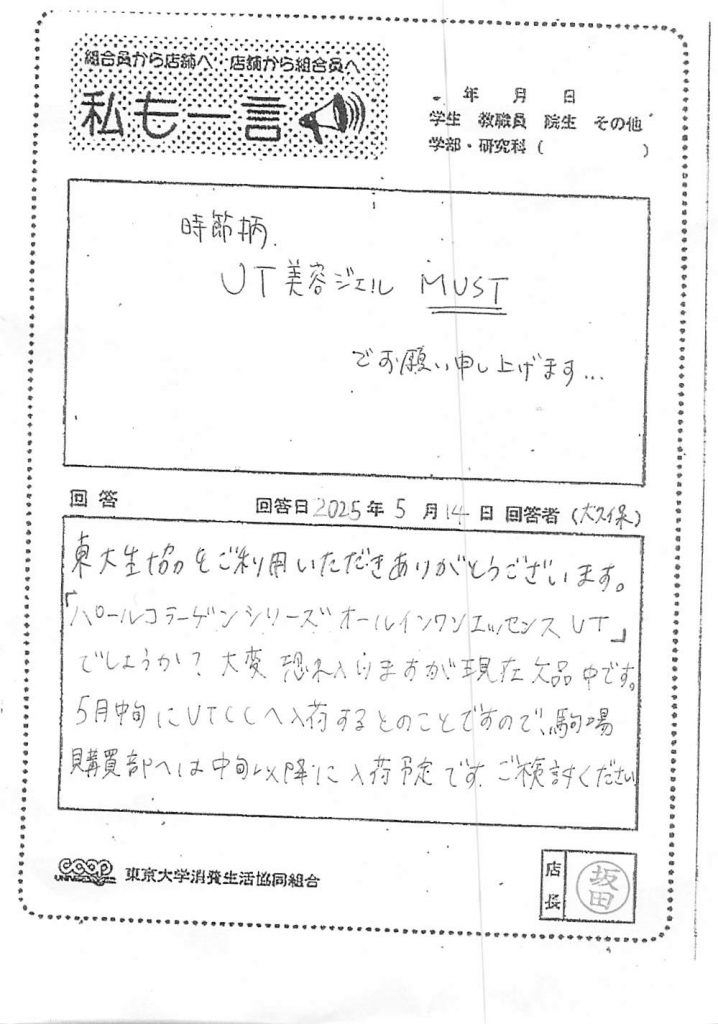 組合員から店舗へ 店舗から組合員へ
私も一言
年 月 日
学生 教職員 院生 その他
学部・研究科( )
時節柄、
UT美容ジェル MUST
でお願い申し上げます...
回答 回答日2025年5月14日 回答者(大久保)
東大生協をご利用いただきありがとうございます。
「パールコラーゲンシリーズオールインワンエッセンスUT」
でしょうか?大変恐れ入りますが現在欠品中です。
5月中旬にUTCCへ入荷するとのことですので、駒場
購買部へは中旬以降に入荷予定です。ご検討ください
coop
東京大学消費生活協同組合
店長
坂田